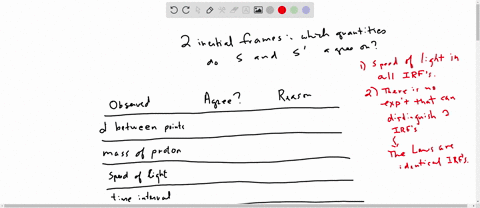 2 inertial frames: which quantities
do S and S' agree on?
Observed Agree? Reason
d between points
mass of proton
Speed of light
time interval
1) Speed of light in
all IRF's.
2) There is no
exp't that can
distinguish
IRF's
The Laws are
identical IRF's.